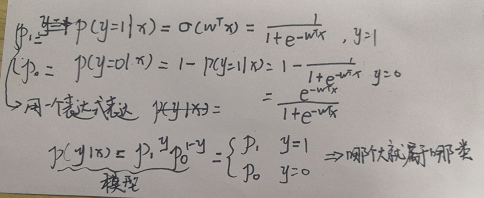 p₁ = p(y=1|x) = σ(wᵀx) = 1/(1+e^{-wᵀx}) , y=1
p₀ = p(y=0|x) = 1 - p(y=1|x) = 1 - 1/(1+e^{-wᵀx}) y=0
= e^{-wᵀx}/(1+e^{-wᵀx})
→用一个表达式表达 p(y|x)=
p(y|x) = p₁^y p₀^{1-y} = { p₁ y=1
p₀ y=0 ⇒哪个大就属于哪类
模型